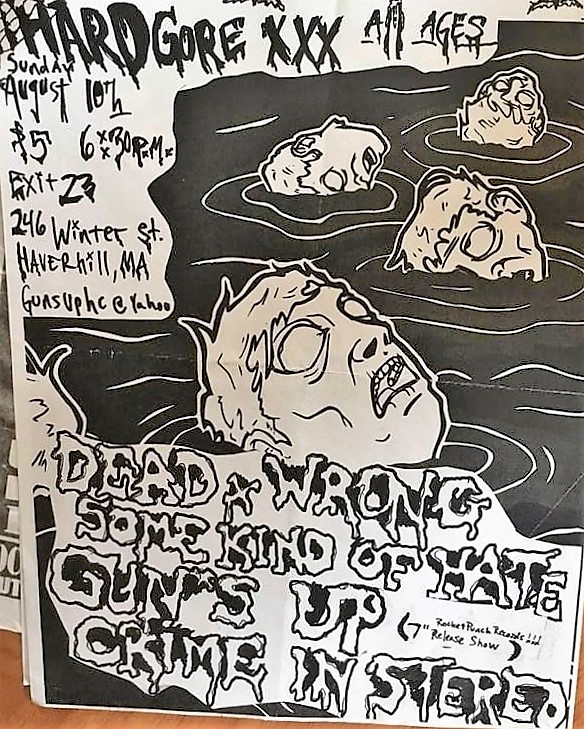 HARDGORE XXX All AGES
Sunday
August 10th
$5 6:30P.M.
Exit 23
246 Winter St.
HAVERHILL, MA
Gunsuphc@Yahoo
DEAD WRONG
SOME KIND OF HATE
GUNS UP
(7" RocketPunch Records!!!
Release Show)
CRIME IN STEREO